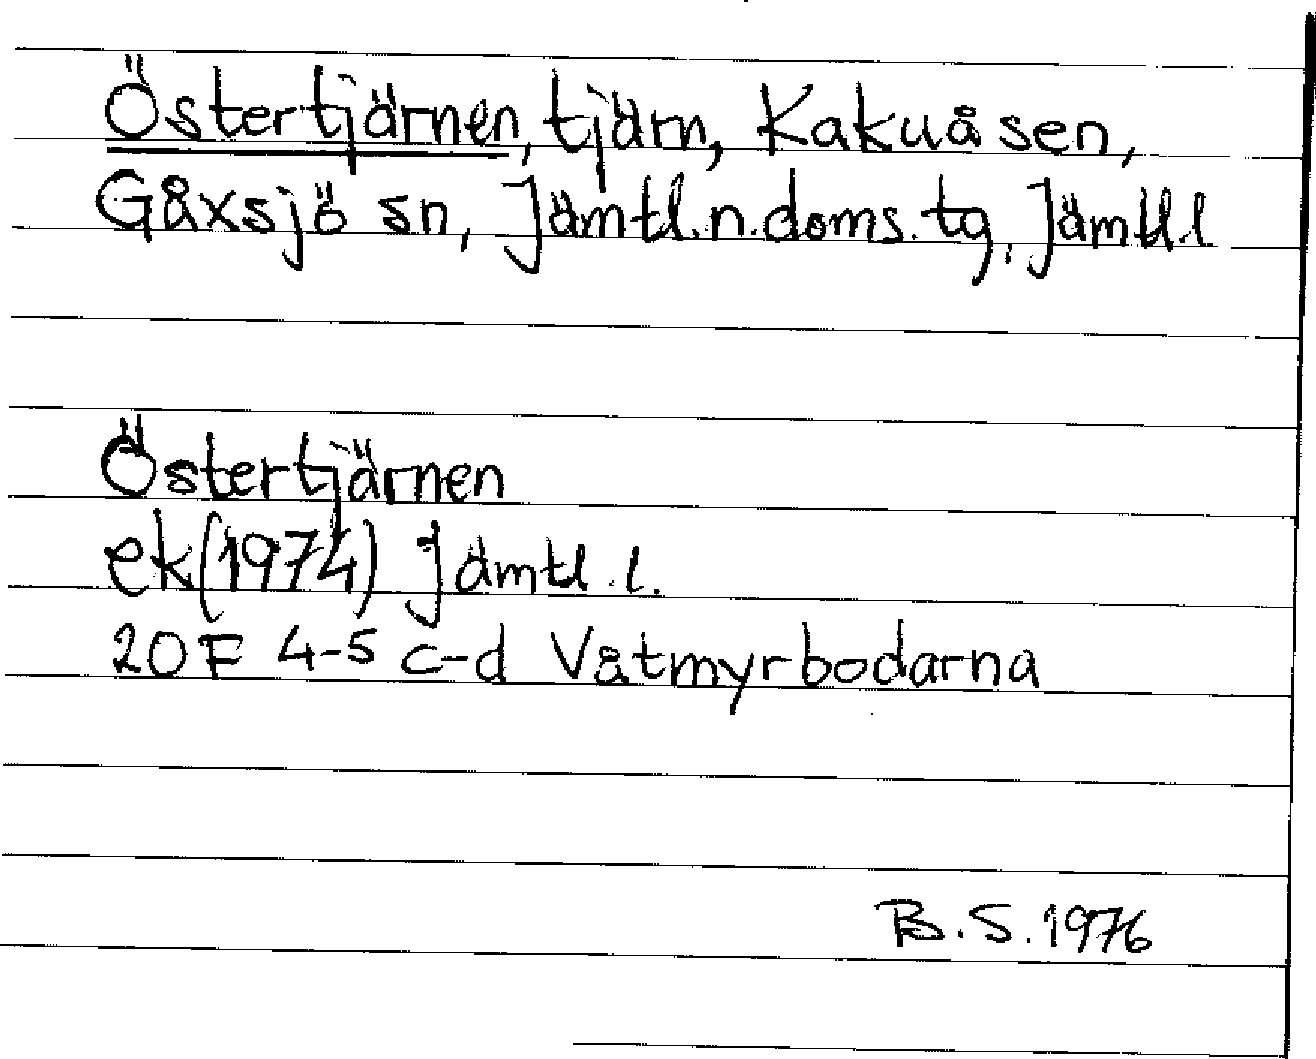 Östertjärnen, tjärn, Kakuåsen,
Gåxsjö sn, Jämtl.n.doms.tg, Jämtl.l
Östertjärnen
ek(1974) Jämtl.l.
20F 4-5 c-d Våtmyrbodarna
B.S.1976